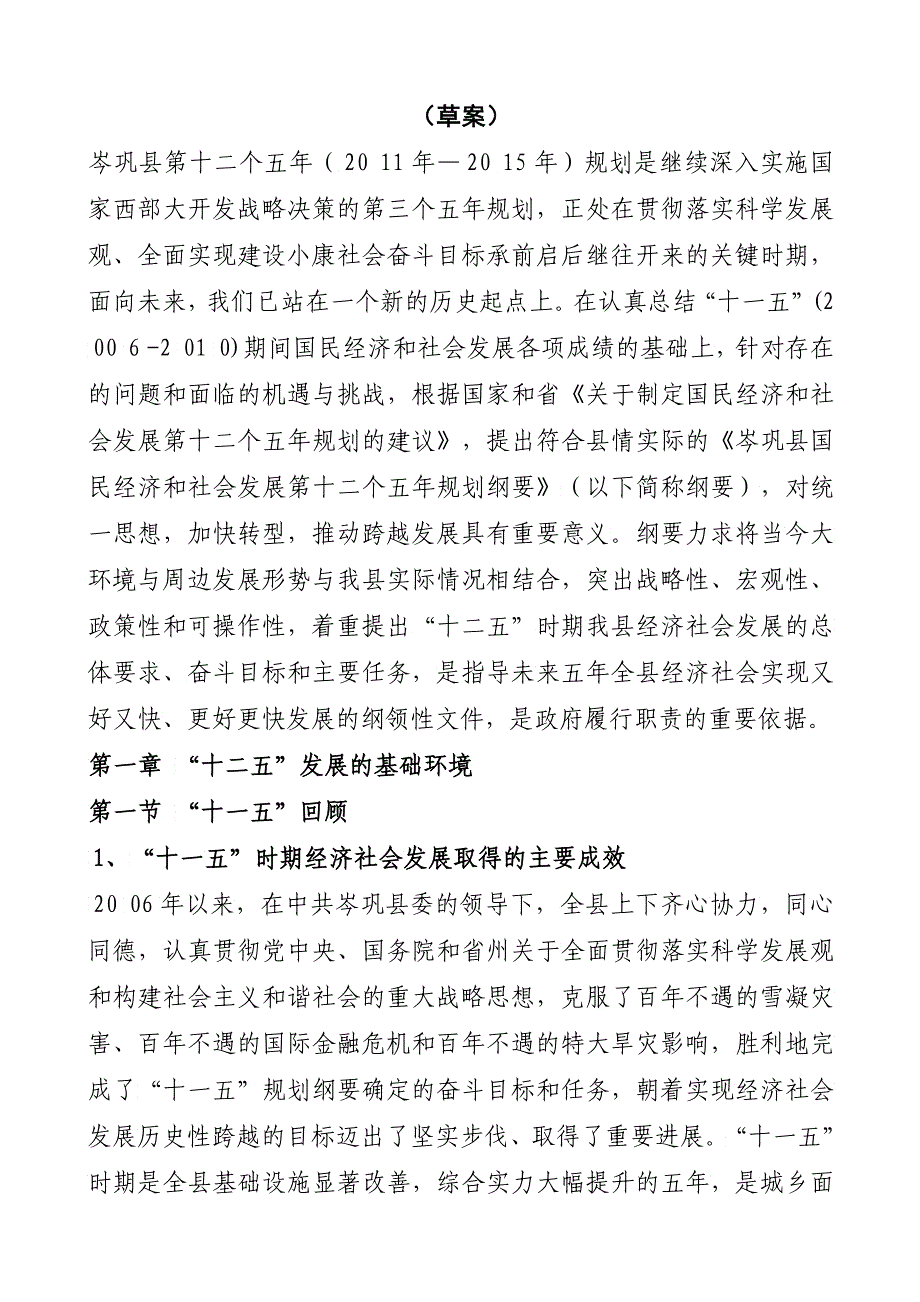 （草案）
岑巩县第十二个五年（20 11年—20 15年）规划是继续深入实施国
家西部大开发战略决策的第三个五年规划，正处在贯彻落实科学发展
观、全面实现建设小康社会奋斗目标承前启后继往开来的关键时期，
面向未来，我们已站在一个新的历史起点上。在认真总结“十一五”(2
00 6-2 01 0)期间国民经济和社会发展各项成绩的基础上，针对存在
的问题和面临的机遇与挑战，根据国家和省《关于制定国民经济和社
会发展第十二个五年规划的建议》，提出符合县情实际的《岑巩县国
民经济和社会发展第十二个五年规划纲要》（以下简称纲要），对统
一思想，加快转型，推动跨越发展具有重要意义。纲要力求将当今大
环境与周边发展形势与我县实际情况相结合，突出战略性、宏观性、
政策性和可操作性，着重提出“十二五”时期我县经济社会发展的总
体要求、奋斗目标和主要任务，是指导未来五年全县经济社会实现又
好又快、更好更快发展的纲领性文件，是政府履行职责的重要依据。
第一章 “十二五”发展的基础环境
第一节 “十一五”回顾
1、“十一五”时期经济社会发展取得的主要成效
20 06年以来，在中共岑巩县委的领导下，全县上下齐心协力，同心
同德，认真贯彻党中央、国务院和省州关于全面贯彻落实科学发展观
和构建社会主义和谐社会的重大战略思想，克服了百年不遇的雪凝灾
害、百年不遇的国际金融危机和百年不遇的特大旱灾影响，胜利地完
成了“十一五”规划纲要确定的奋斗目标和任务，朝着实现经济社会
发展历史性跨越的目标迈出了坚实步伐、取得了重要进展。“十一五”
时期是全县基础设施显著改善，综合实力大幅提升的五年，是城乡面